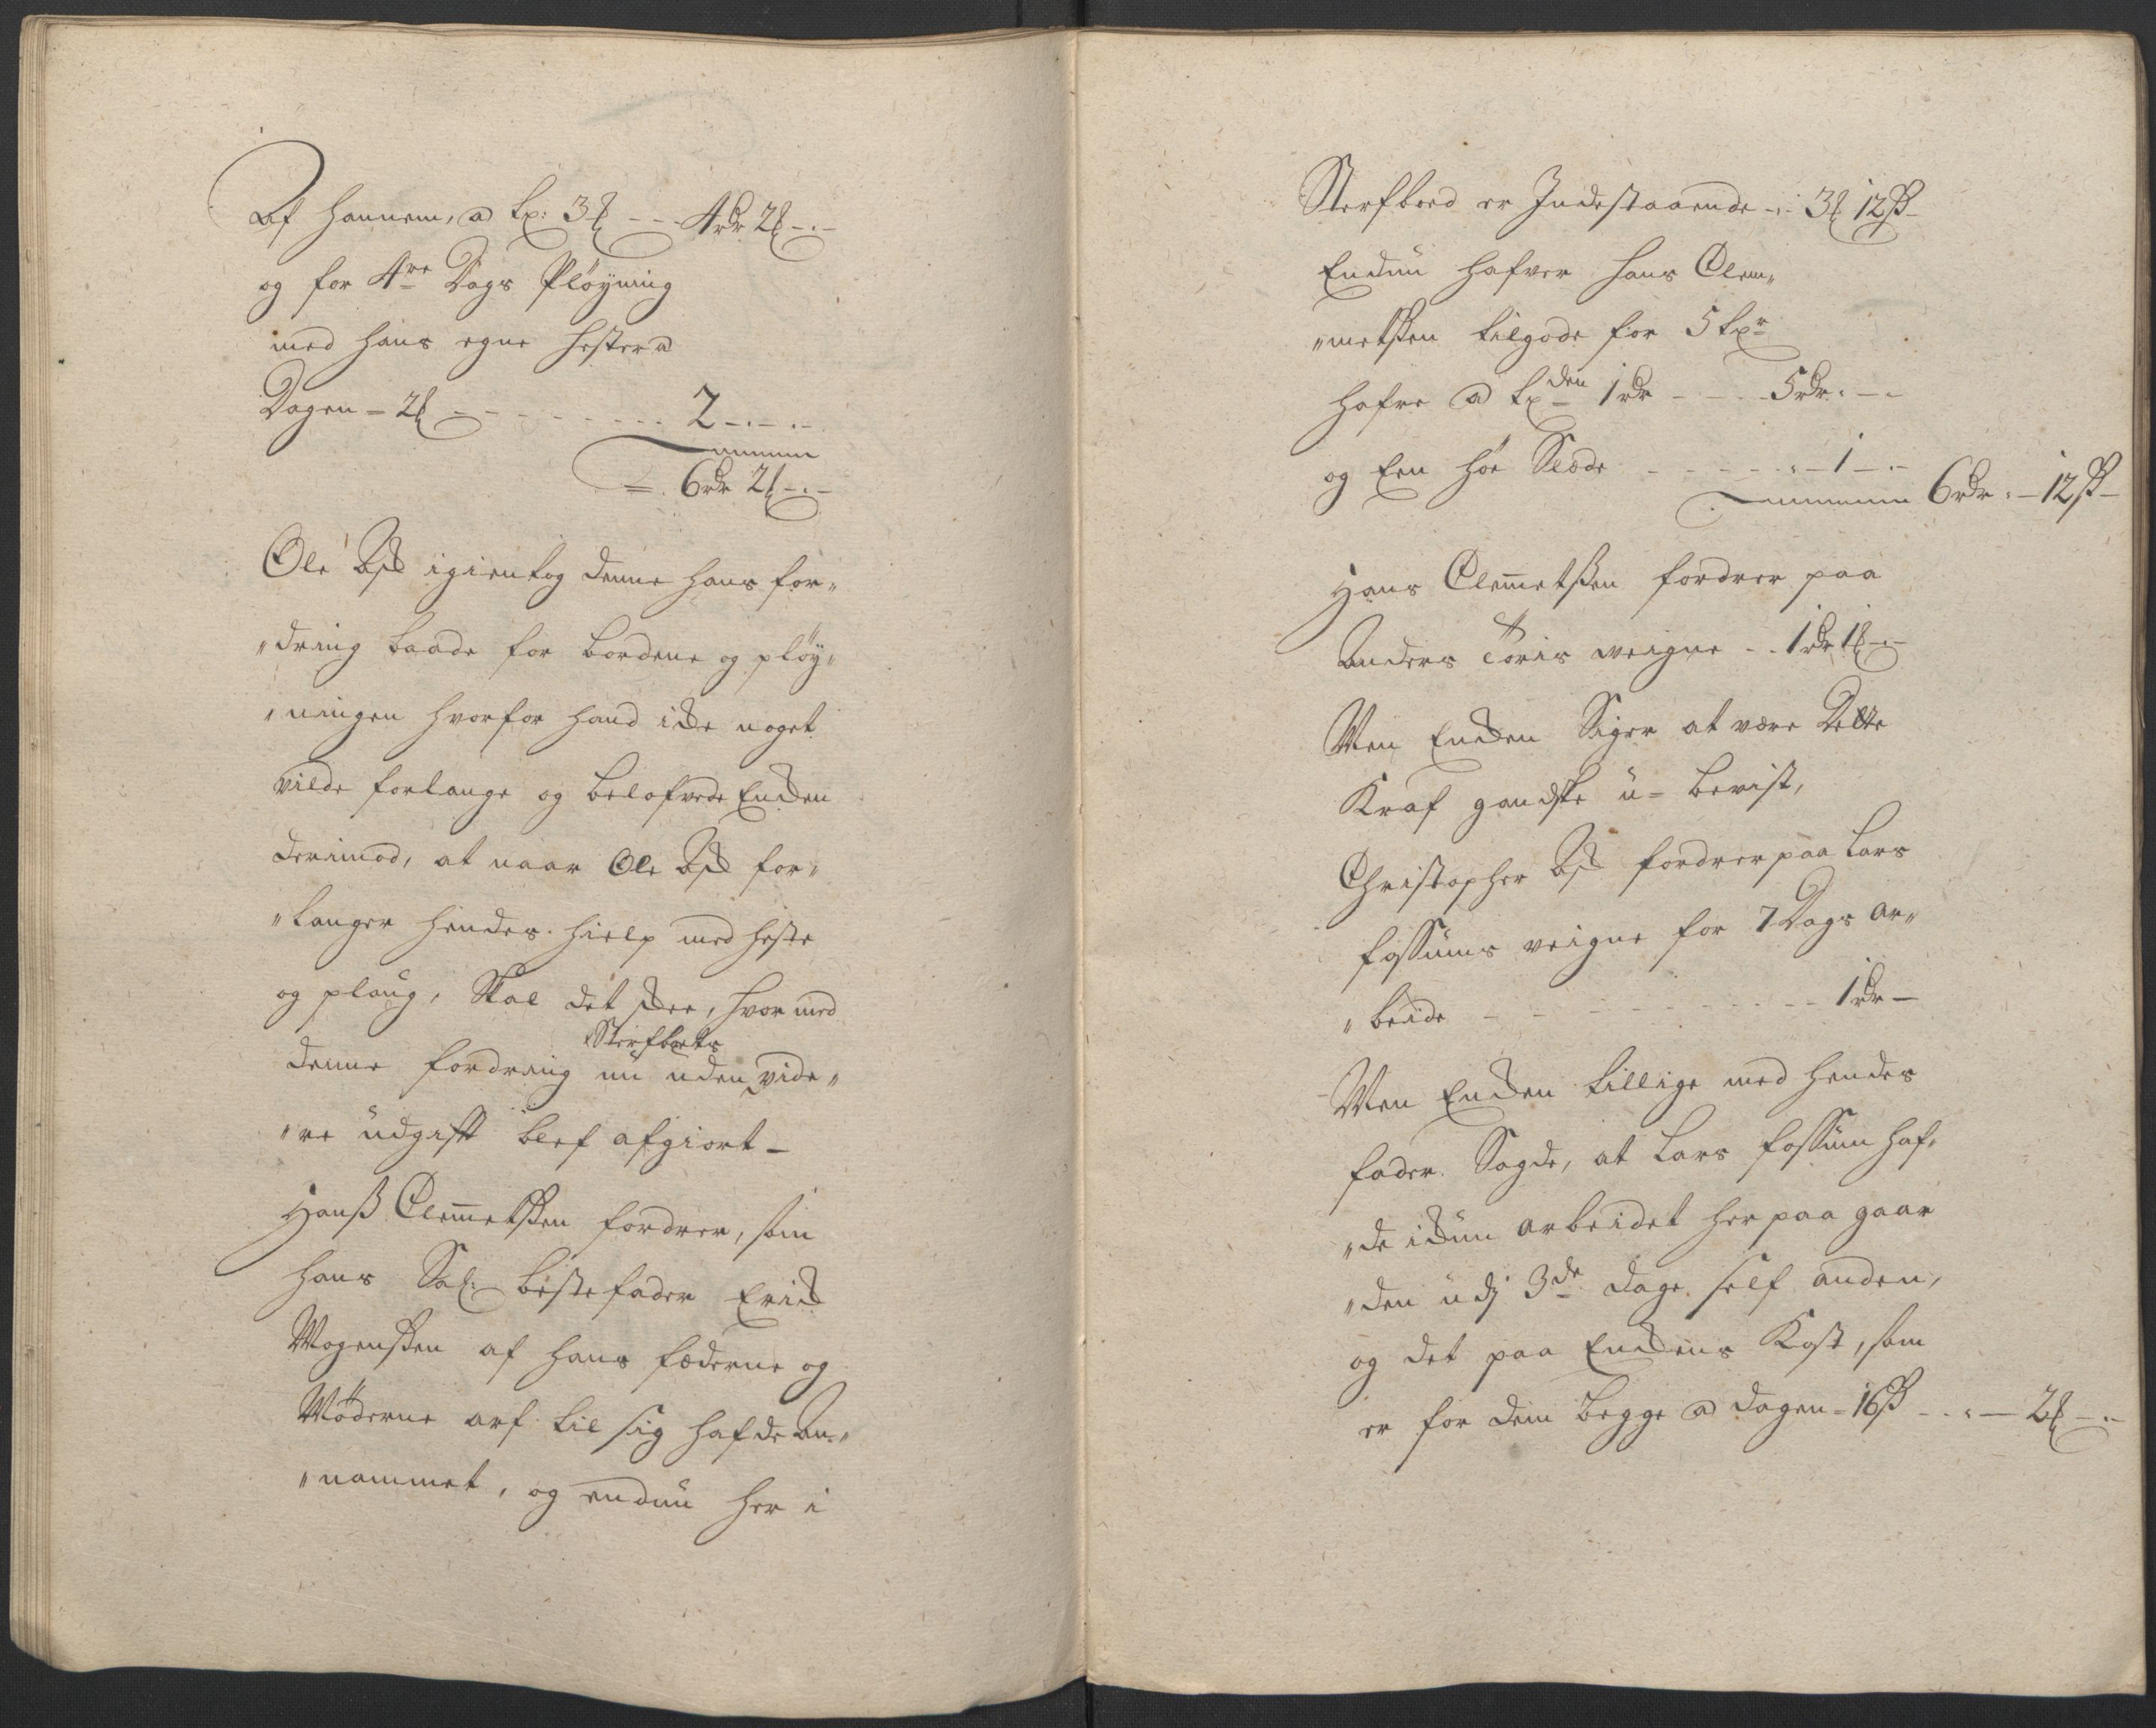 af hannem, a tx: 3ℳ --- 4rdr 2ℳ -.-
og for 4re Dags Pløyning
med hans egne Hester a
Dagen - 2ℳ - - - - - - - 2 -.-.-
= 6rdr 2ℳ -.-
Ole Ask igientog denne hans for„
„dring baade for bordene og pløy„
„ningen hvorfor hand icke noget
vilde forlange og belofvede Encken
derimod, at naar Ole Ask for„
„langer hendes hielp med heste
og ploug, Skal det skee, hvormed
Sterfboets
denne fordring nu uden vide„
„re udgift blef afgiort -
Hanß Clemmetßen fordrer, som
hans Sal: bestefader Erick
Mogenßen af hans fæderne og
Møderne arf til sig hafde An„
„nammet, og endnu her i
Sterfboed er Indestaaende -:- 3ℳ 12ß -
Endnu hafver Hans Clem„
„metßen tilgode for 5 txr
hafre a txden 1rdr - - - 5rdr. - -
og Een høe Slæde - - - - - - 1 -.-
6rdr. - 12ß -
Hans Clemmetßen fordrer paa
Anders veigne - - 1rdr 1ℳ -.-
Men Encken Siger at være Dette
Kraf gandske u- bevist,
Christopher Ask fordrer paa Lars
fossums veigne for 7 Dags ar„
„beide - - - - - - - - - - 1rdr -
Men Encken tillige med hendes
fader Sagde, at Lars fossum haf„
„de ickun arbeidet her paa gaar
„den udj 3de dage self anden,
og det paa Enckens Kost, som
er for dem begge a dagen - 16ß - . - 2ℳ -.-